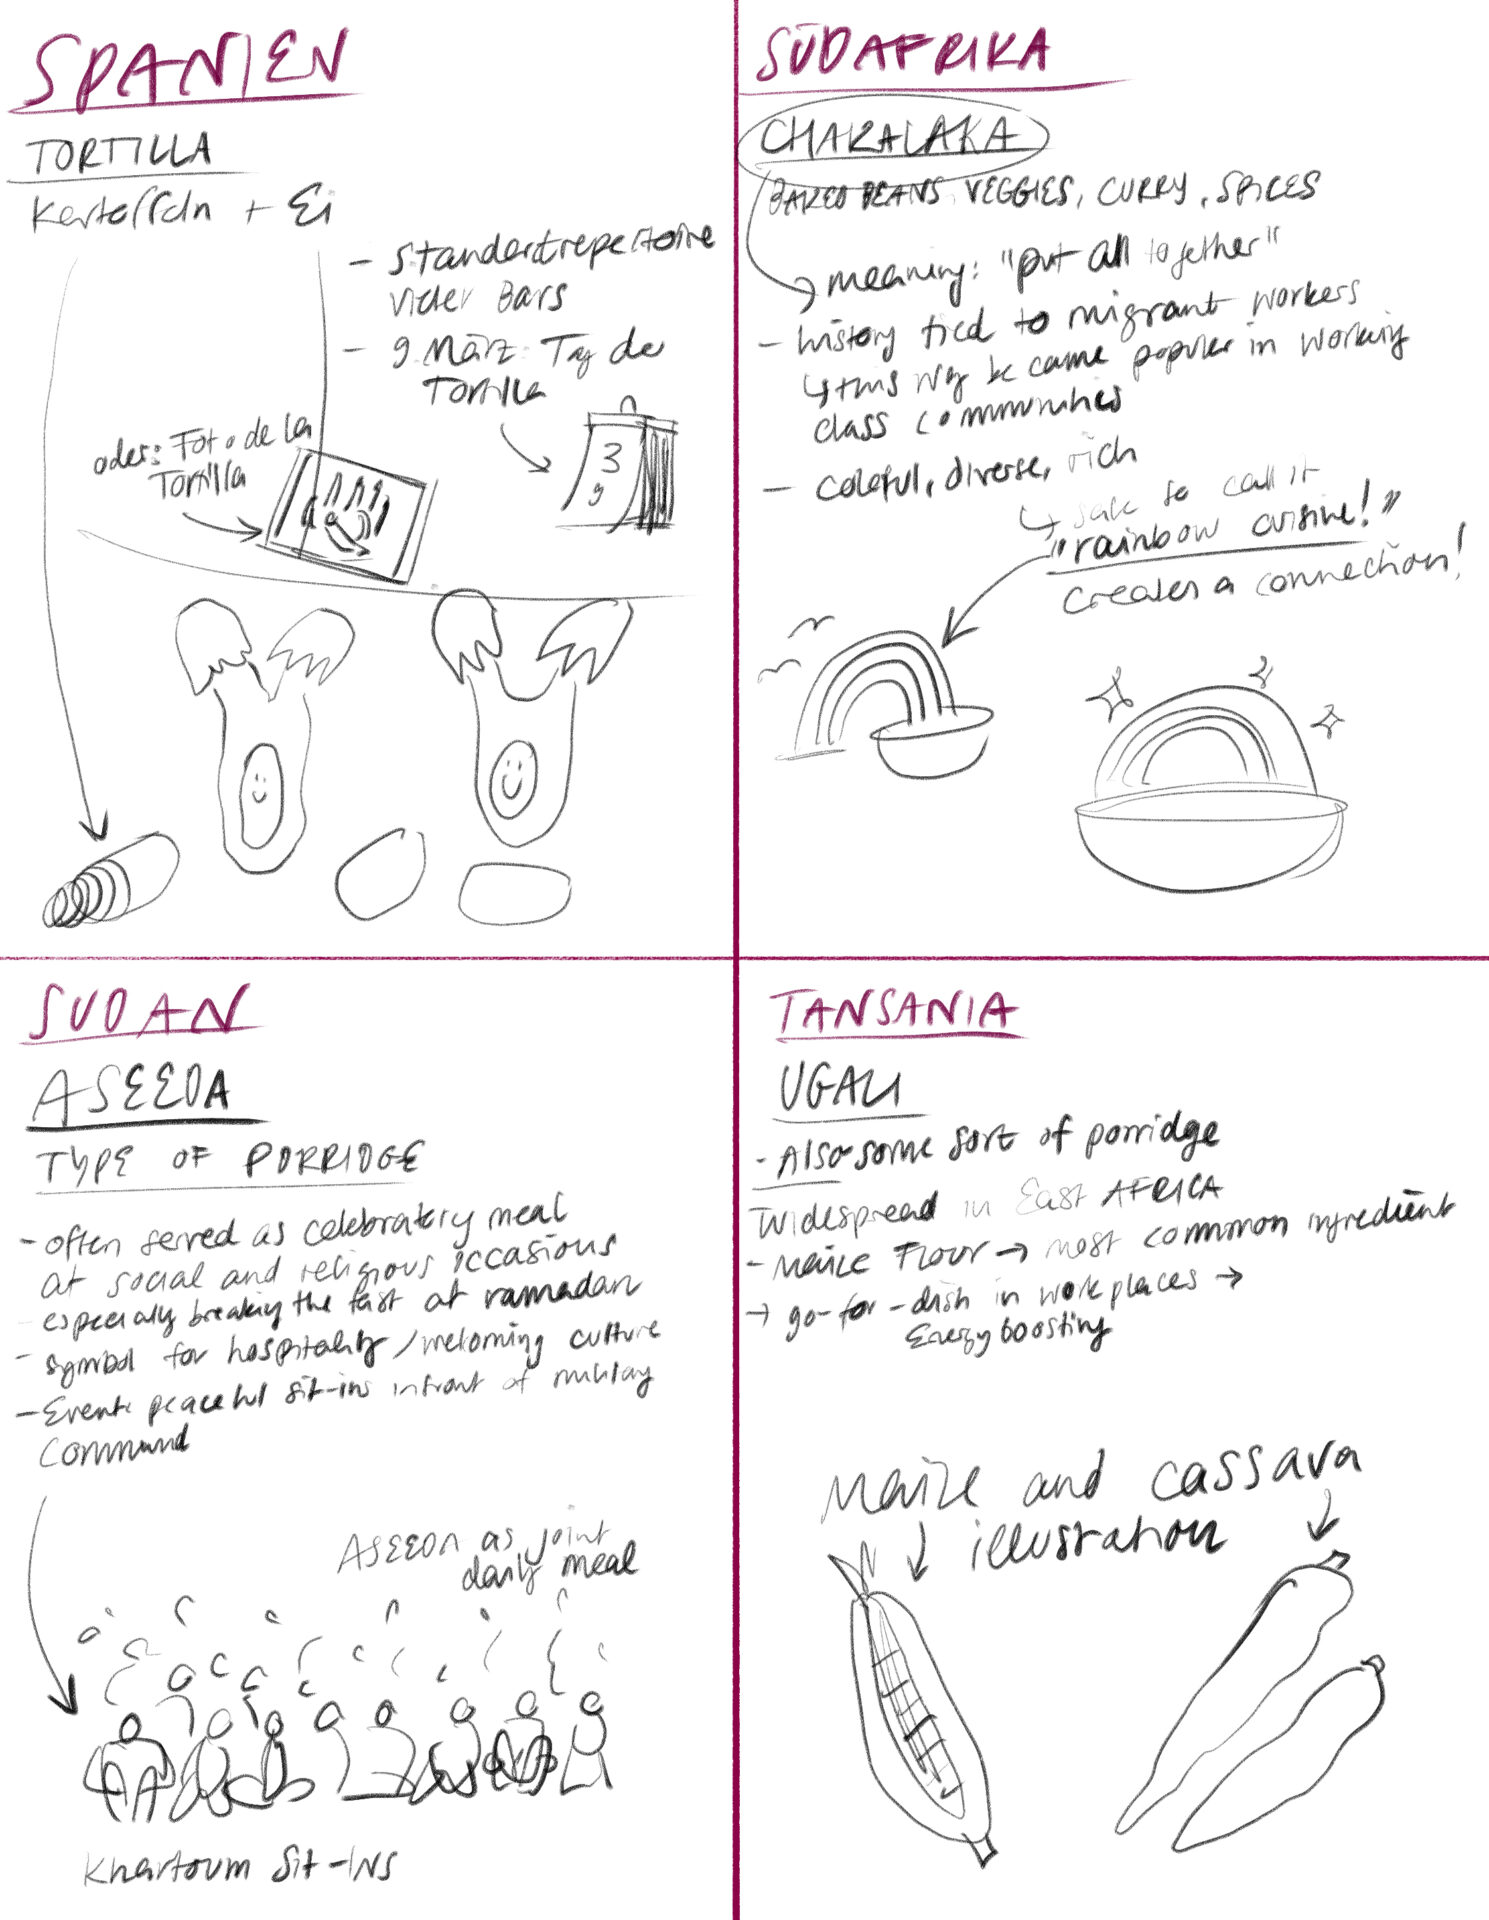 SPANIEN
TORTILLA
Kartoffeln + Ei
- Standardrepertoire
vieler Bars
- 9. März: Tag der
Tortilla
oder: Foto de la
Tortilla
3
9
SÜDAFRIKA
CHAKALAKA
BAKED BEANS, VEGGIES, CURRY, SPICES
meaning: "put all together"
- history tied to migrant workers
↳ this way became popular in working
class communities
- colorful, diverse, rich
↳ safe to call it
"rainbow cuisine!"
creates a connection!
SUDAN
ASEEDA
TYPE OF PORRIDGE
- often served as celebratory meal
at social and religious occasions
especially breaking the fast at ramadan
- symbol for hospitality / welcoming culture
- Event: peaceful sit-ins infront of military
command
ASEEDA as joint
daily meal
Khartoum Sit-INS
TANSANIA
UGALI
- Also some sort of porridge
Widespread in East AFRICA
- Maize Flour → most common ingredient
→ go-for-dish in work places →
Energy boosting
Maize and cassava
illustration